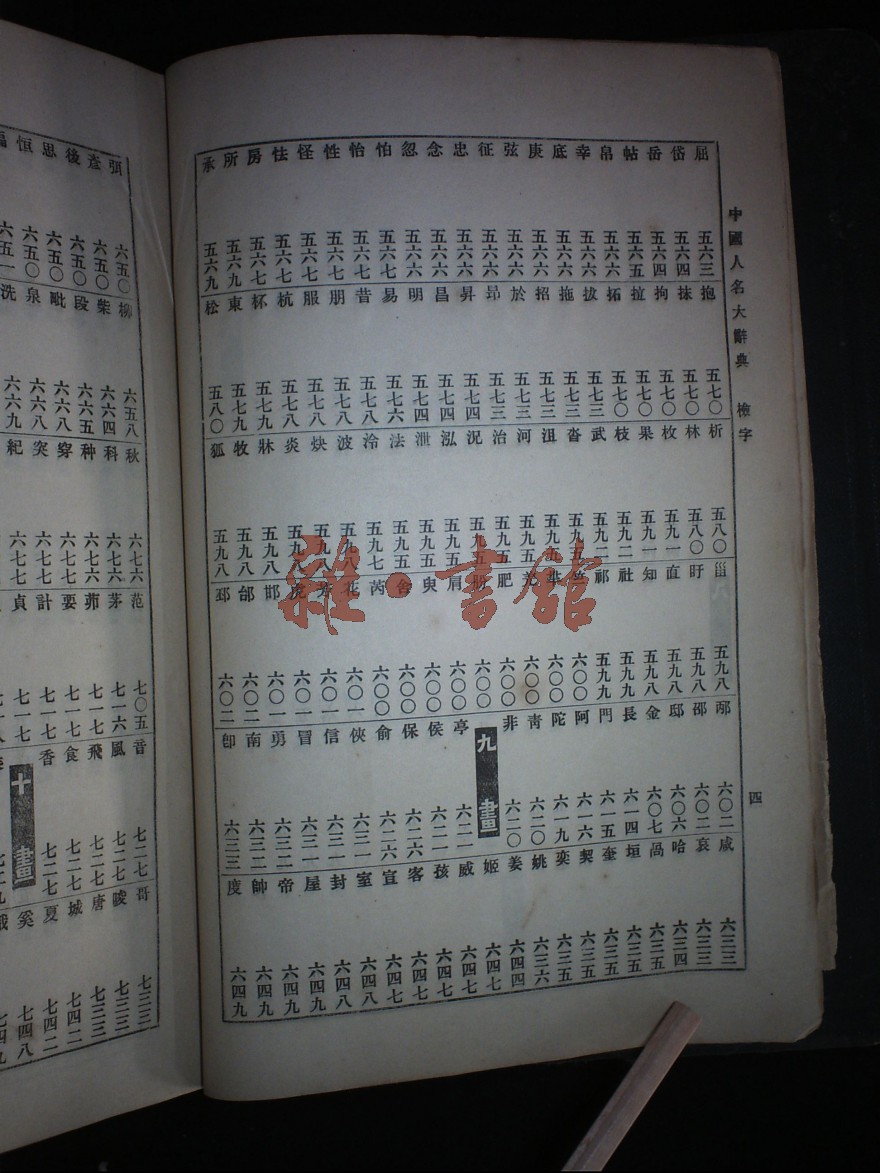 中國人名大辭典 檢字
四
屈 岱 岳 帖 帛 幸 底 庚 弦 征 忠 念 忽 怕 怡 性 怪 怯 房 所 承
五六三 五六四 五六四 五六五 五六六 五六六 五六六 五六六 五六六 五六六 五六六 五六六 五六六 五六七 五六七 五六七 五六七 五六七 五六七 五六九 五六九
抱 抹 拘 拉 拓 拔 拖 招 於 昂 昇 昌 明 易 昔 朋 服 杭 杯 東 松
五七〇 五七〇 五七〇 五七〇 五七〇 五七三 五七三 五七三 五七三 五七三 五七四 五七四 五七四 五七六 五七八 五七八 五七八 五七八 五七九 五七九 五八〇
析 林 枚 果 枝 武 沓 沮 河 治 況 泓 泄 法 泠 波 炔 炎 牀 牧 狐
五八〇 五八〇 五九一 五九一 五九二 五九二 五九五 五九五 五九五 五九五 五九五 五九五 五九五 五九五 五九七 五九八 五九八 五九八 五九八 五九八 五九八
甾 盱 直 知 社 祁 竺 羋 羌 肥 肸 肩 臾 舍 芮 花 芳 虎 邯 邰 邳
五九八 五九八 五九八 五九八 五九九 五九九 六〇〇 六〇〇 六〇〇 六〇〇 六〇〇 六〇〇 六〇〇 六〇〇 六〇〇 六〇一 六〇一 六〇一 六〇一 六〇二 六〇二
邴 邵 邸 金 長 門 阿 陀 青 非 九畫 亭 侯 保 俞 俠 信 冒 勇 南 卽
六〇二 六〇二 六〇六 六〇七 六一四 六一五 六一六 六一九 六二〇 六二〇 六二一 六二一 六二六 六二六 六三一 六三一 六三一 六三二 六三二 六三三
咸 哀 哈 咼 垣 奎 契 奕 姚 姜 姬 威 孩 客 宣 室 封 屋 帝 帥 度
六三三 六三三 六三四 六三五 六三五 六三五 六三五 六三五 六三六 六四四 六四七 六四七 六四七 六四七 六四七 六四八 六四八 六四九 六四九 六四九 六四九
弭 彥 後 思 恒
六五〇 六五〇 六五〇 六五〇 六五〇 六五一
柳 柴 段 毗 泉 洗
六五八 六六四 六六五 六六八 六六八 六六九
秋 科 种 穿 突 紀
六七六 六七六 六七六 六七七 六七七 六七七
范 茅 茆 要 計 貞
七〇五 七一六 七一七 七一七 七一七 七一八
音 風 飛 食 香 十畫
七二七 七二七 七二七 七二七 七二七 七二九
哥 唆 唐 城 夏 奚
七三三 七三三 七三三 七四二 七四二 七四八 七四九
雜·書館